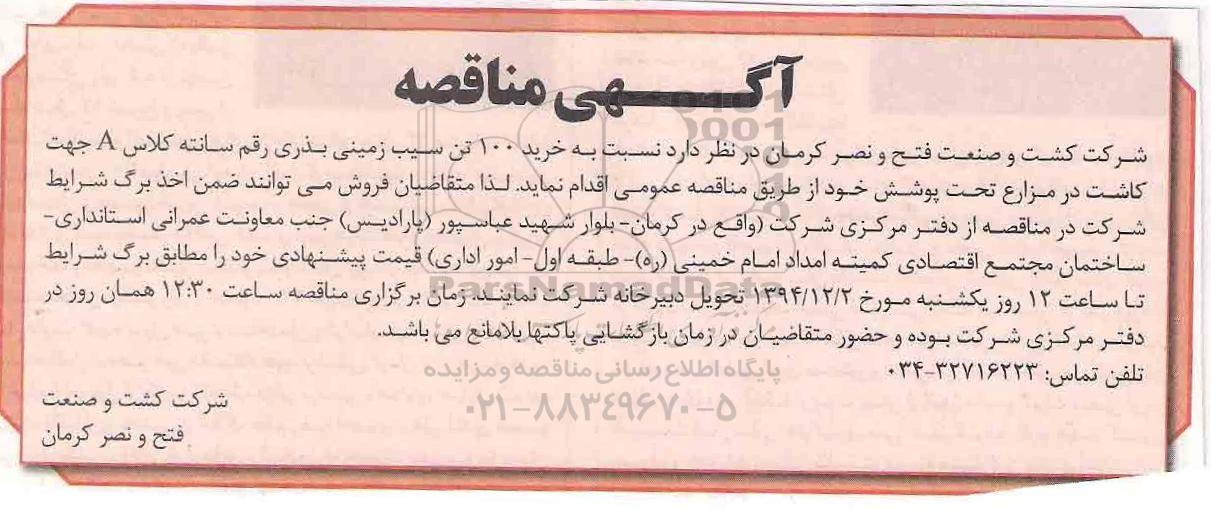 آگهی مناقصه
شرکت کشت و صنعت فتح و نصر کرمان در نظر دارد نسبت به خرید ۱۰۰ تن سیب زمینی بذری رقم سانته کلاس A جهت
کاشت در مزارع تحت پوشش خود از طریق مناقصه عمومی اقدام نماید. لذا متقاضیان فروش می توانند ضمن اخذ برگ شرایط
شرکت در مناقصه از دفتر مرکزی شرکت (واقع در کرمان- بلوار شهید عباسپور (پارادیس) جنب معاونت عمرانی استانداری-
ساختمان مجتمع اقتصادی کمیته امداد امام خمینی (ره)- طبقه اول- امور اداری) قیمت پیشنهادی خود را مطابق برگ شرایط
تا ساعت ۱۲ روز یکشنبه مورخ ۱۳۹۴/۱۲/۲ تحویل دبیرخانه شرکت نمایند. زمان برگزاری مناقصه ساعت ۱۲:۳۰ همان روز در
دفتر مرکزی شرکت بوده و حضور متقاضیان در زمان بازگشایی پاکتها بلامانع می باشد.
تلفن تماس: ۳۲۷۱۶۲۲۳-۰۳۴
شرکت کشت و صنعت
فتح و نصر کرمان
ParsNamadData
پایگاه اطلاع رسانی مناقصه و مزایده
۰۲۱-۸۸۳۴۹۶۷۰-۵